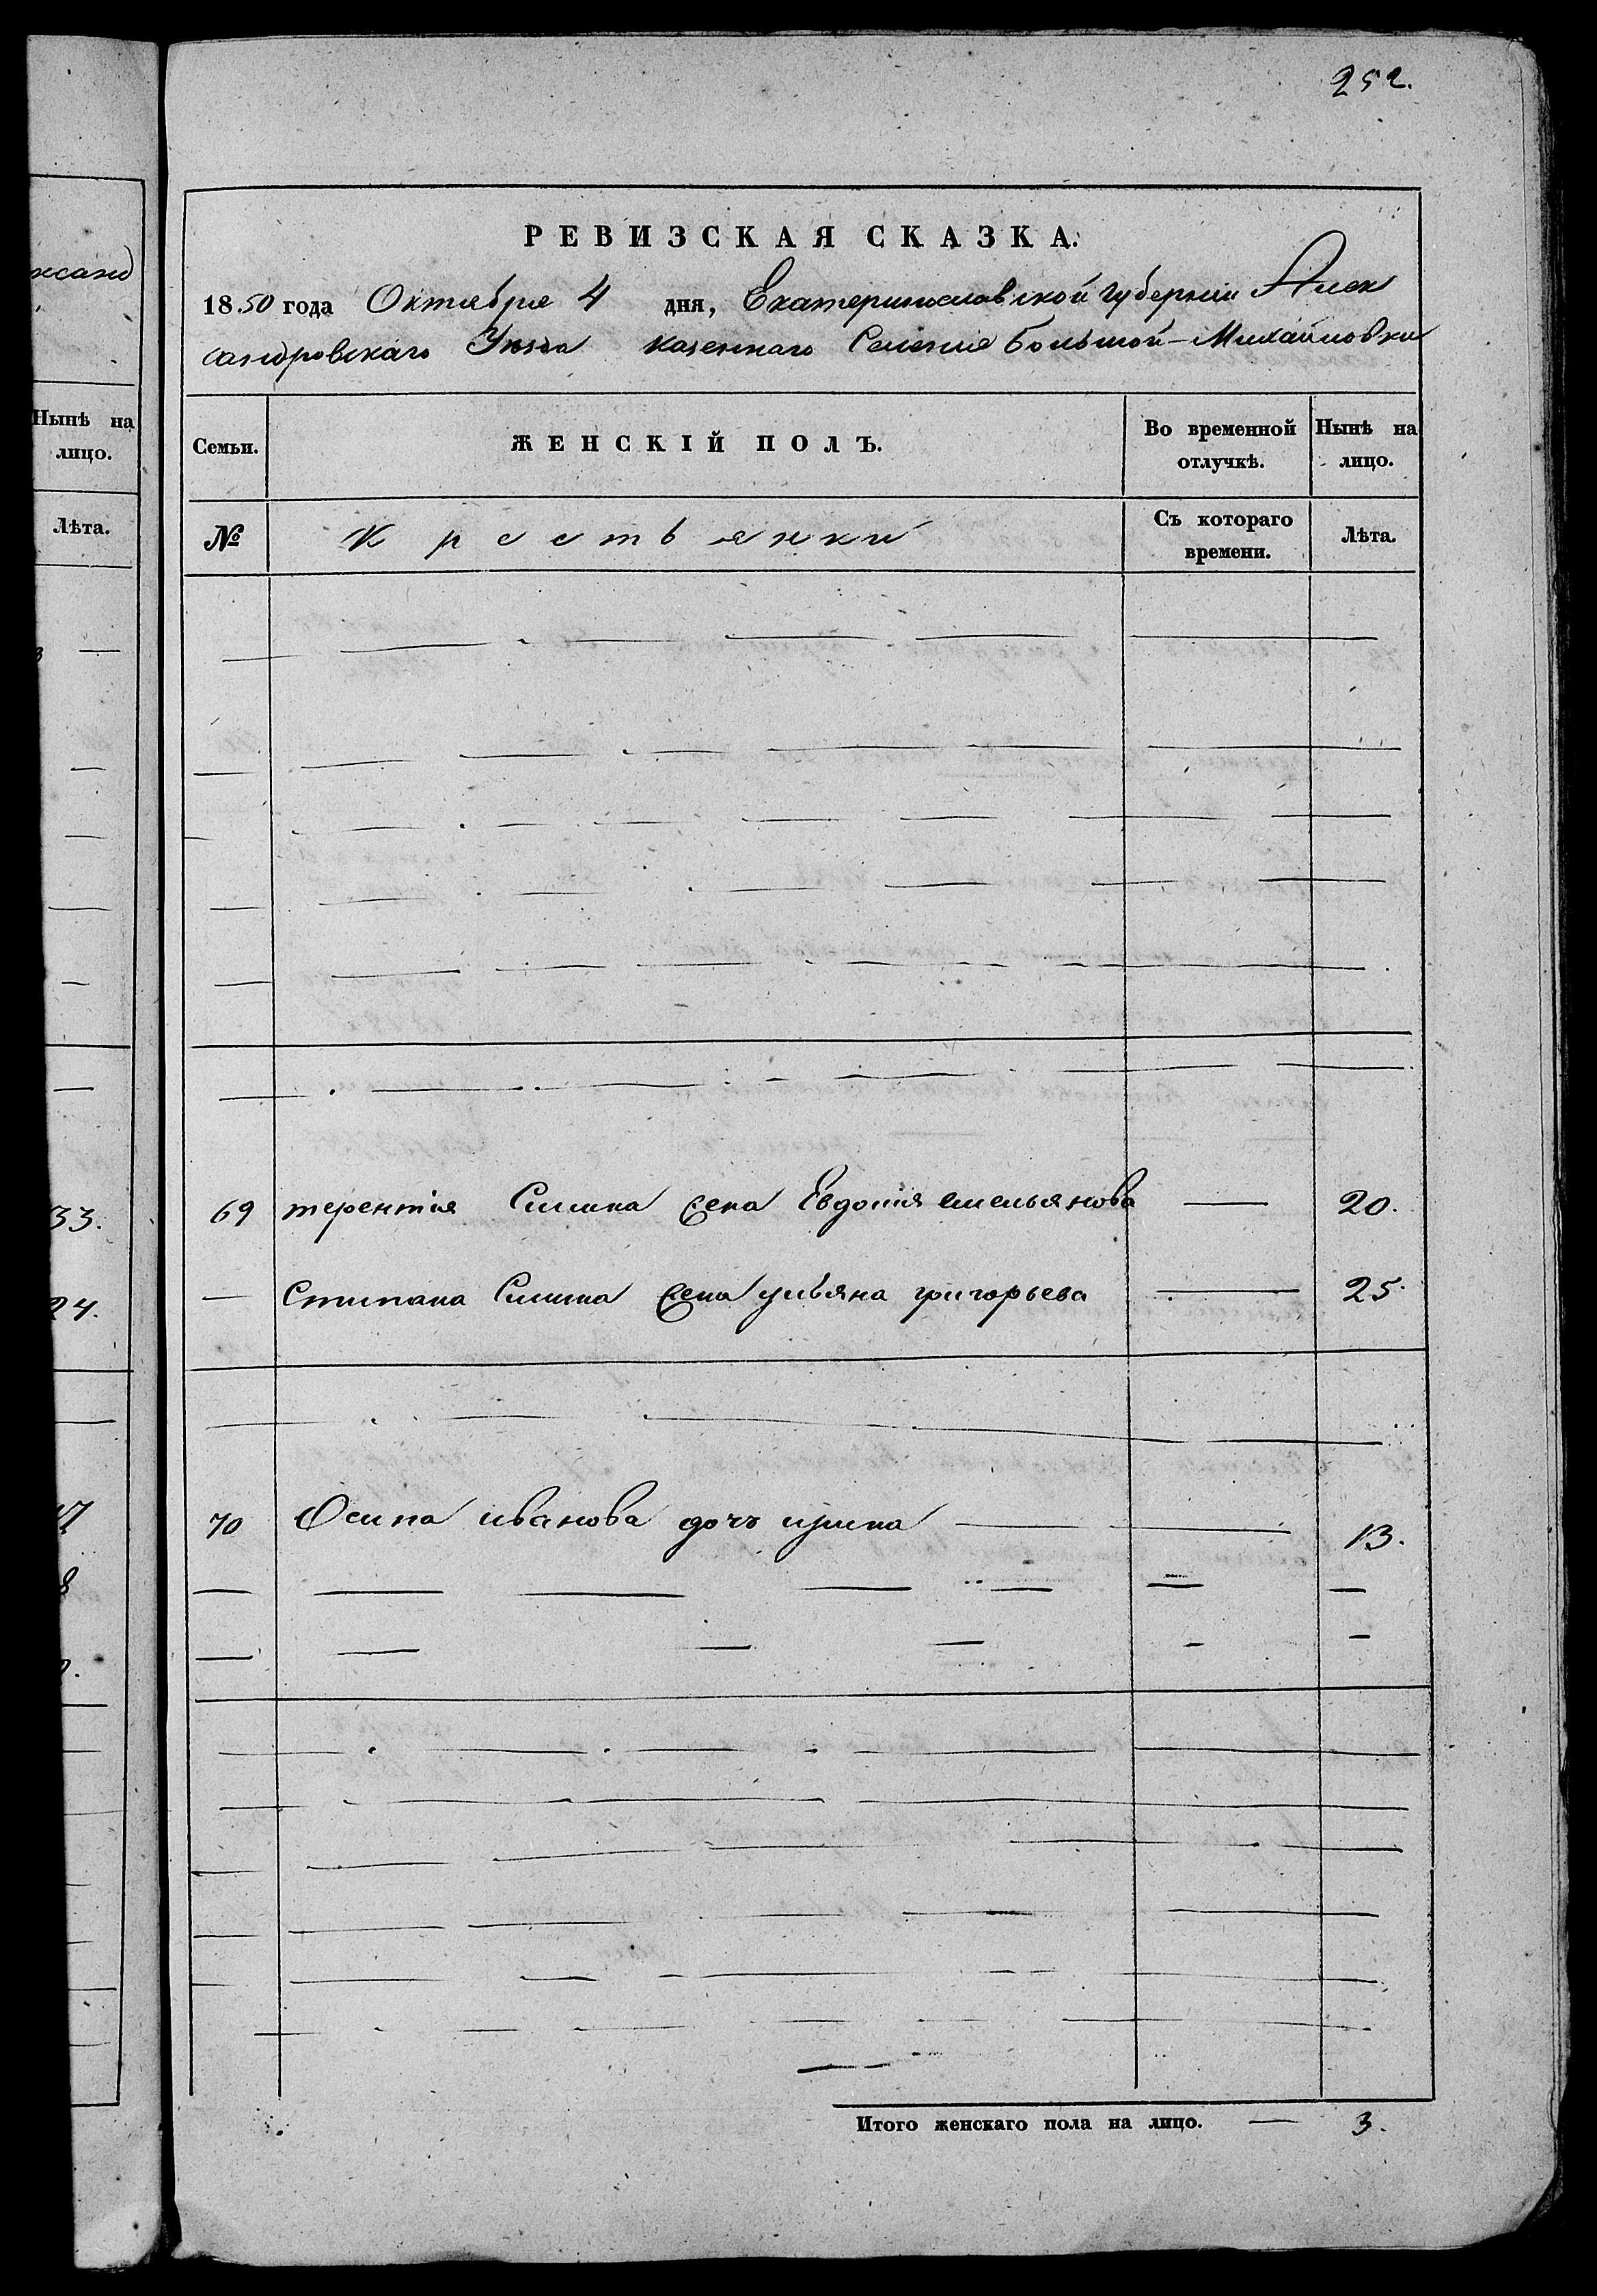 252.
РЕВИЗСКАЯ СКАЗКА.
1850 года Октября 4 дня, Екатеринославской губернии Алек
сандровскаго Уезда казеннаго Селения Большой-Михайловки
Семьи. ЖЕНСКІЙ ПОЛЪ. Во временной отлучкѣ. Нынѣ на лицо.
№ Крестьянки Съ котораго времени. Лѣта.
69 терентия Силина жена Евдокия емельянова — 20.
— Стипана Силина жена ульяна григорьева — 25.
70 Осипа иванова дочь ирина — 13.
Итого женскаго пола на лицо. — 3.
ксанд
Нынѣ на
лицо.
Лѣта.
33.
24.
17
8